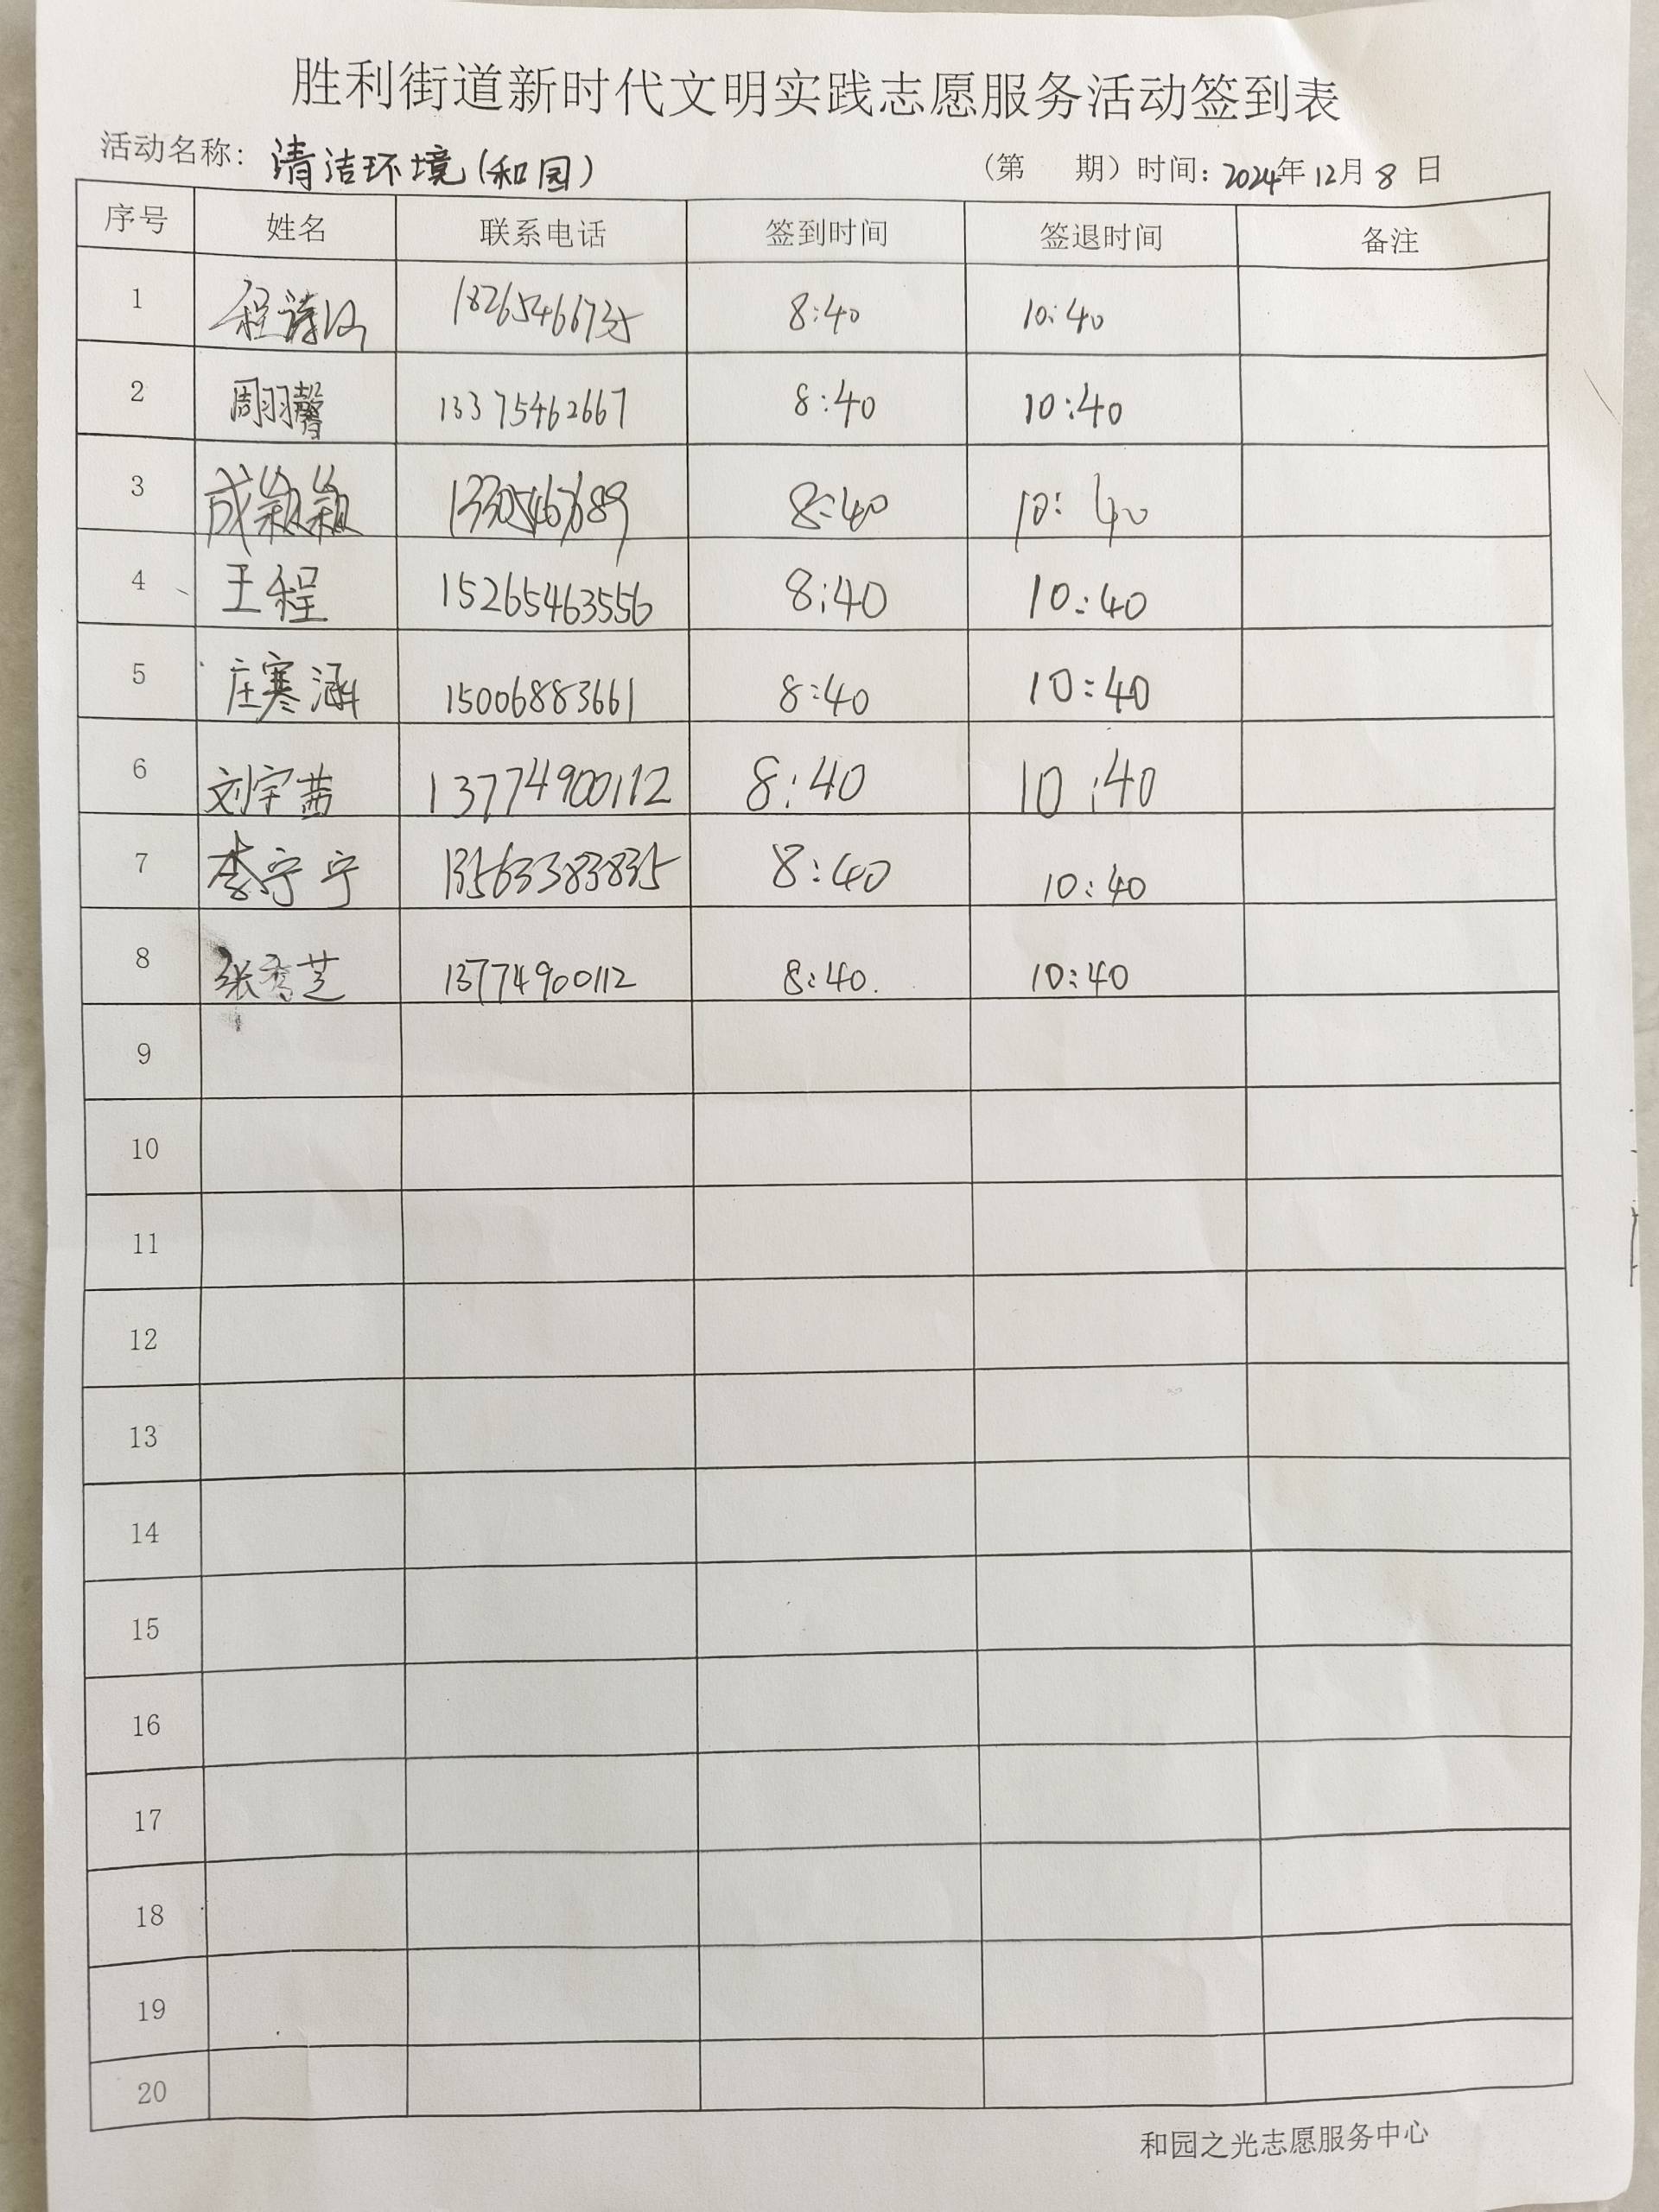 胜利街道新时代文明实践志愿服务活动签到表
活动名称：清洁环境(和园) (第 期) 时间：2024年12月8日
序号 姓名 联系电话 签到时间 签退时间 备注
1 程诗 8:40 10:40
2 周羽馨 13375462667 8:40 10:40
3 成颖颖 8:40 10:40
4 王程 15265463556 8:40 10:40
5 庄寒涵 15006883661 8:40 10:40
6 刘宇茜 13774900112 8:40 10:40
7 李宁宁 13563383835 8:40 10:40
8 张秀芝 13774900112 8:40. 10:40
9
10
11
12
13
14
15
16
17
18
19
20
和园之光志愿服务中心